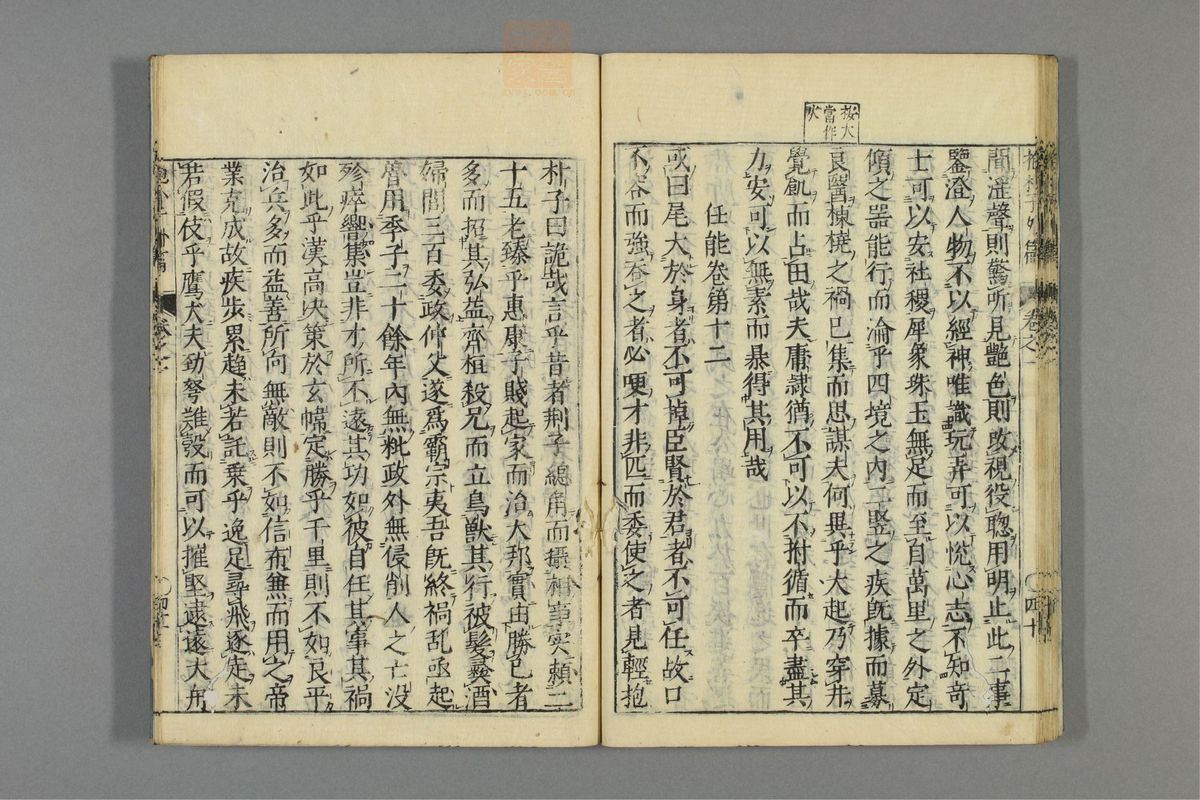 按大
當作
火
聞淫聲則驚听見艷色則改視役聰用明止此二事
鑒澄人物不以經神唯識玩弄可以悅心志不知奇
士可以安社稷犀象珠玉無足而至百萬里之外定
傾之器能行而淪乎四境之内二豎之疾既據而募
良醫棟橈之禍已集而思謀夫何異乎大起乃穿井
覺飢而占田哉夫庸隷猶不可以不拊循而卒盡其
力安可以無素而暴得其用哉
任能卷第十二
或曰尾大於身者不可掉臣賢於君者不可任故口
不容而強吞之者必哽才非匹而委使之者見輕抱
朴子曰詭哉言乎昔者荆子總角而攝相事实賴二
十五老臻乎惠康子賤起家而治大邦實由勝己者
多而招其弘益齊桓殺兄而立鳥獸其行被髮彜酒
婦閭三百委政仲父遂爲霸宗夷吾既終禍乱亟起
魯用季子二十餘年内無粃政外無侵削人之亡没
殄瘁響集豈非才所不逮其功如彼自任其事其禍
如此乎漢高决策於玄幃定勝乎千里則不如良平
治兵多而益善所向無敵則不如信布無而用之帝
業克成故疾歩累趨未若託乗乎逸足尋飛逐走未
若假伎乎鷹犬夫勁弩難彀而可以摧堅逮遠大舟